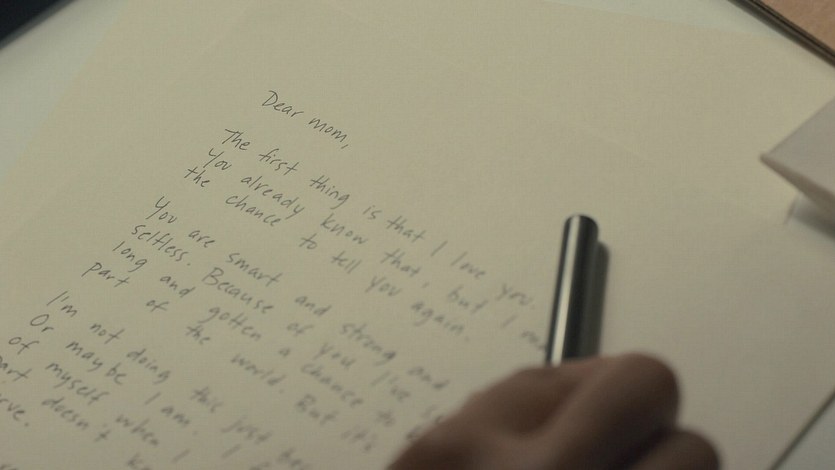 Dear mom,
The first thing is that I love you.
You already know that, but I
the chance to tell you again.
You are smart and strong and
selfless. Because of you I've
long and gotten a chance to
part of the world. But it's
I'm not doing this just
Or maybe I am. I
of myself when I
part doesn't